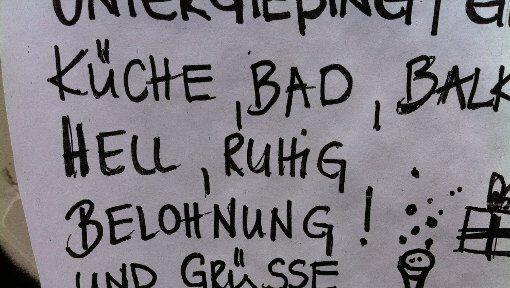 KÜCHE, BAD, BALK
HELL, RUHIG
BELOHNUNG!
UND GRÜSSE